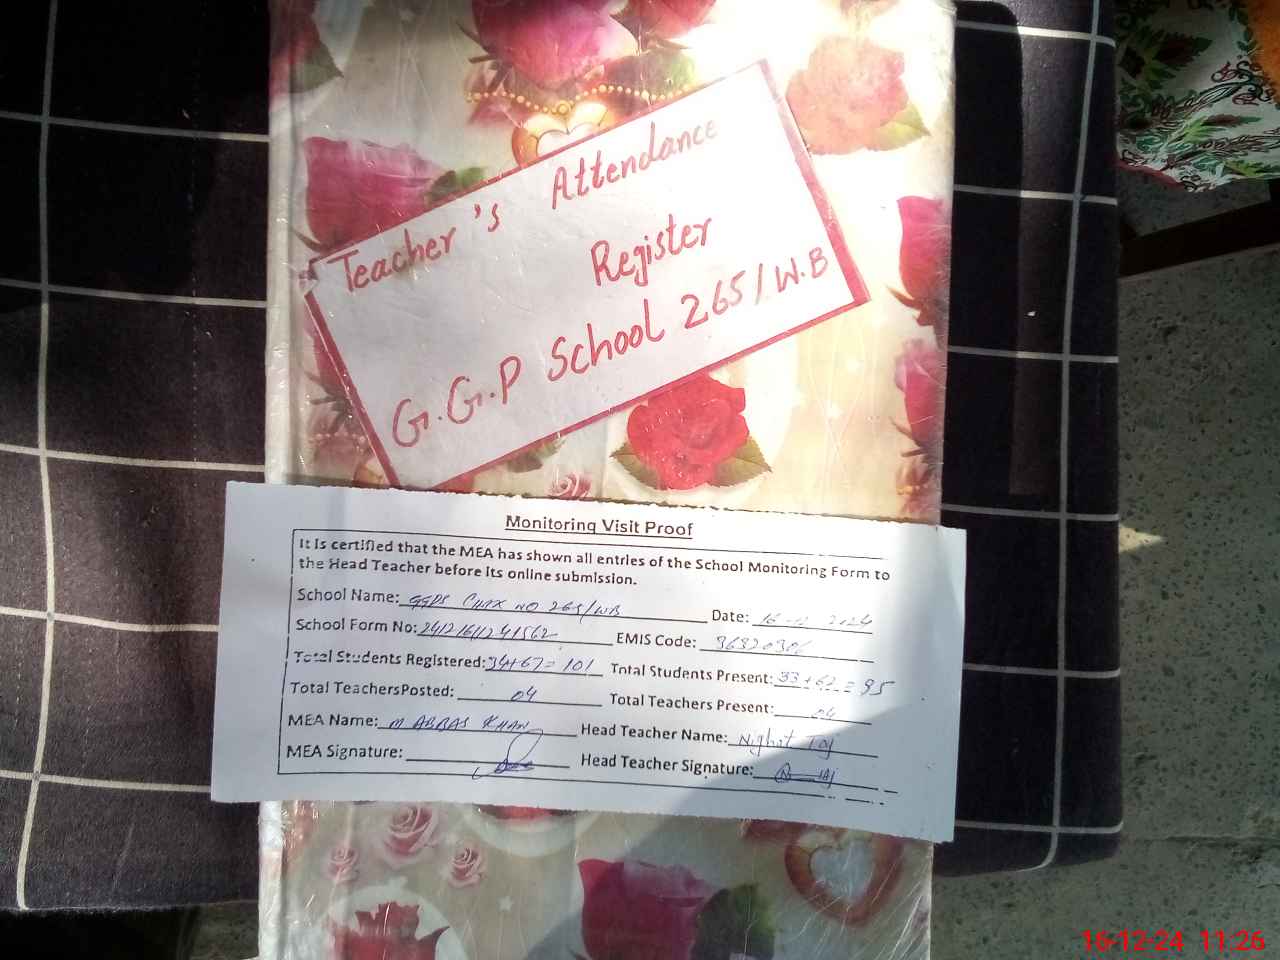 Teacher's Attendance
Register
G.G.P School 265/W.B
Monitoring Visit Proof
It is certified that the MEA has shown all entries of the School Monitoring Form to
the Head Teacher before its online submission.
School Name: GGPS Chak No 265/WB Date: 16-12-2024
School Form No: EMIS Code:
Total Students Registered: 34+67=101 Total Students Present: 33+62=95
Total TeachersPosted: 04 Total Teachers Present: 04
MEA Name: M ABBAS KHAN Head Teacher Name: Nighat Taj
MEA Signature: Head Teacher Signature:
16-12-24 11:26